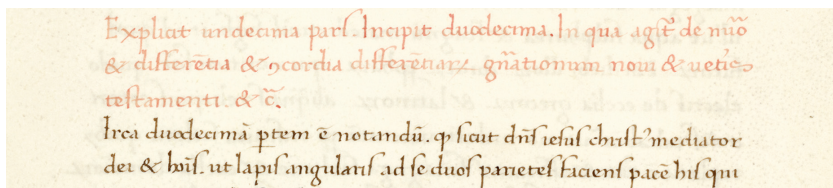 Explicit undecima pars. Incipit duodecima. In qua agit̃ de nũo
& differẽtia & ꝯcordia differẽtiaꝝ gñationum noui & ueti⁹
testamenti. & c̃.
Irca duodecimã ꝑtem ẽ notandũ. ꝙ sicut dñs iesus christ⁹ mediator
dei & hoĩs. ut lapis angularis ad se duos parietes faciens pacẽ his qui